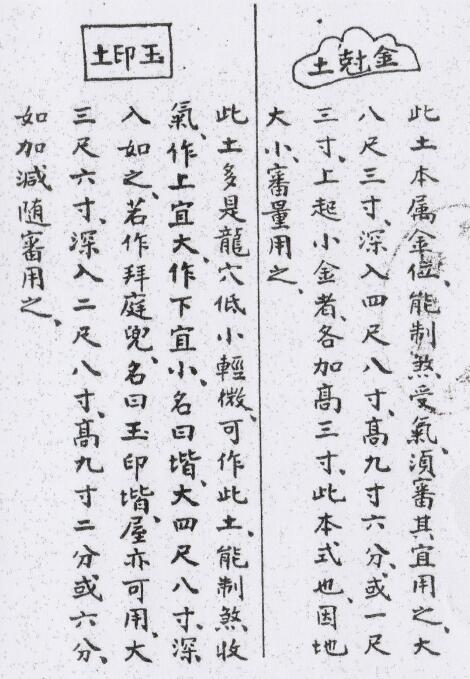 金尅土
此土本属金位、能制煞受氣、須審其宜用之、大
八尺三寸、深入四尺八寸、高九寸六分、或一尺
三寸、上起小金者、各加高三寸、此本式也、因地
大小、審量用之、
玉印土
此土多是龍穴低小輕微、可作此土、能制煞收
氣、作上宜大、作下宜小、名曰堦、大四尺八寸、深
入如之、若作拜庭兜、名曰玉印堦、屋亦可用、大
三尺六寸、深入二尺八寸、高九寸二分或六分、
如加減随審用之、